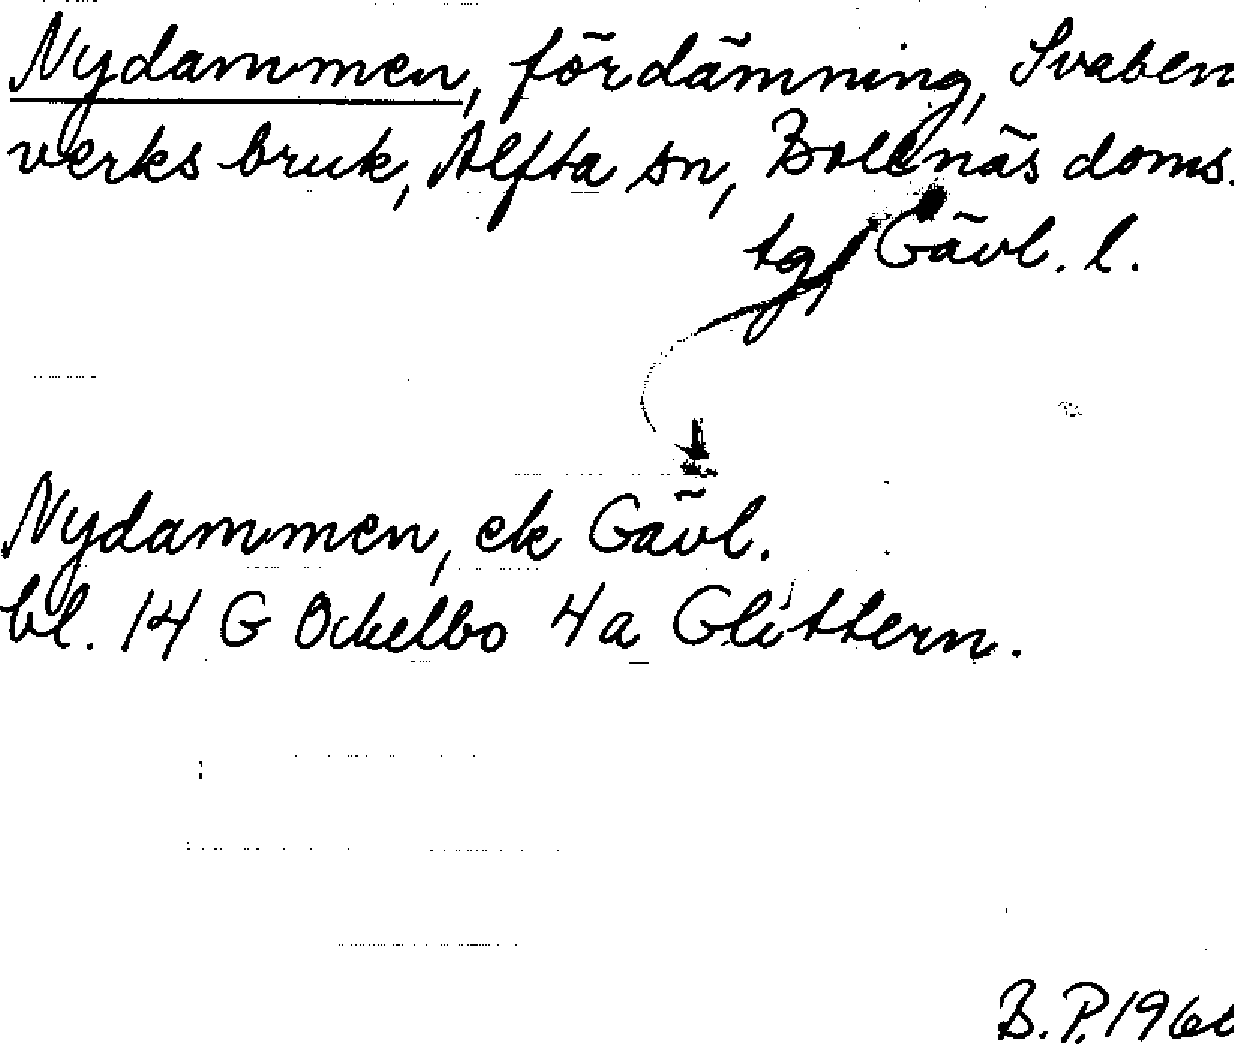 Nydammen, fördämning, Svaben
verks bruk, Alfta sn, Bollnäs doms.
tg, Gävl. l.
Nydammen, ek Gävl.
bl. 14 G Ockelbo 4a Glittern.
B. P. 196